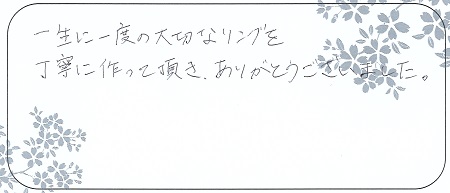 一生に一度の大切なリングを
丁寧に作って頂き、ありがとうございました。